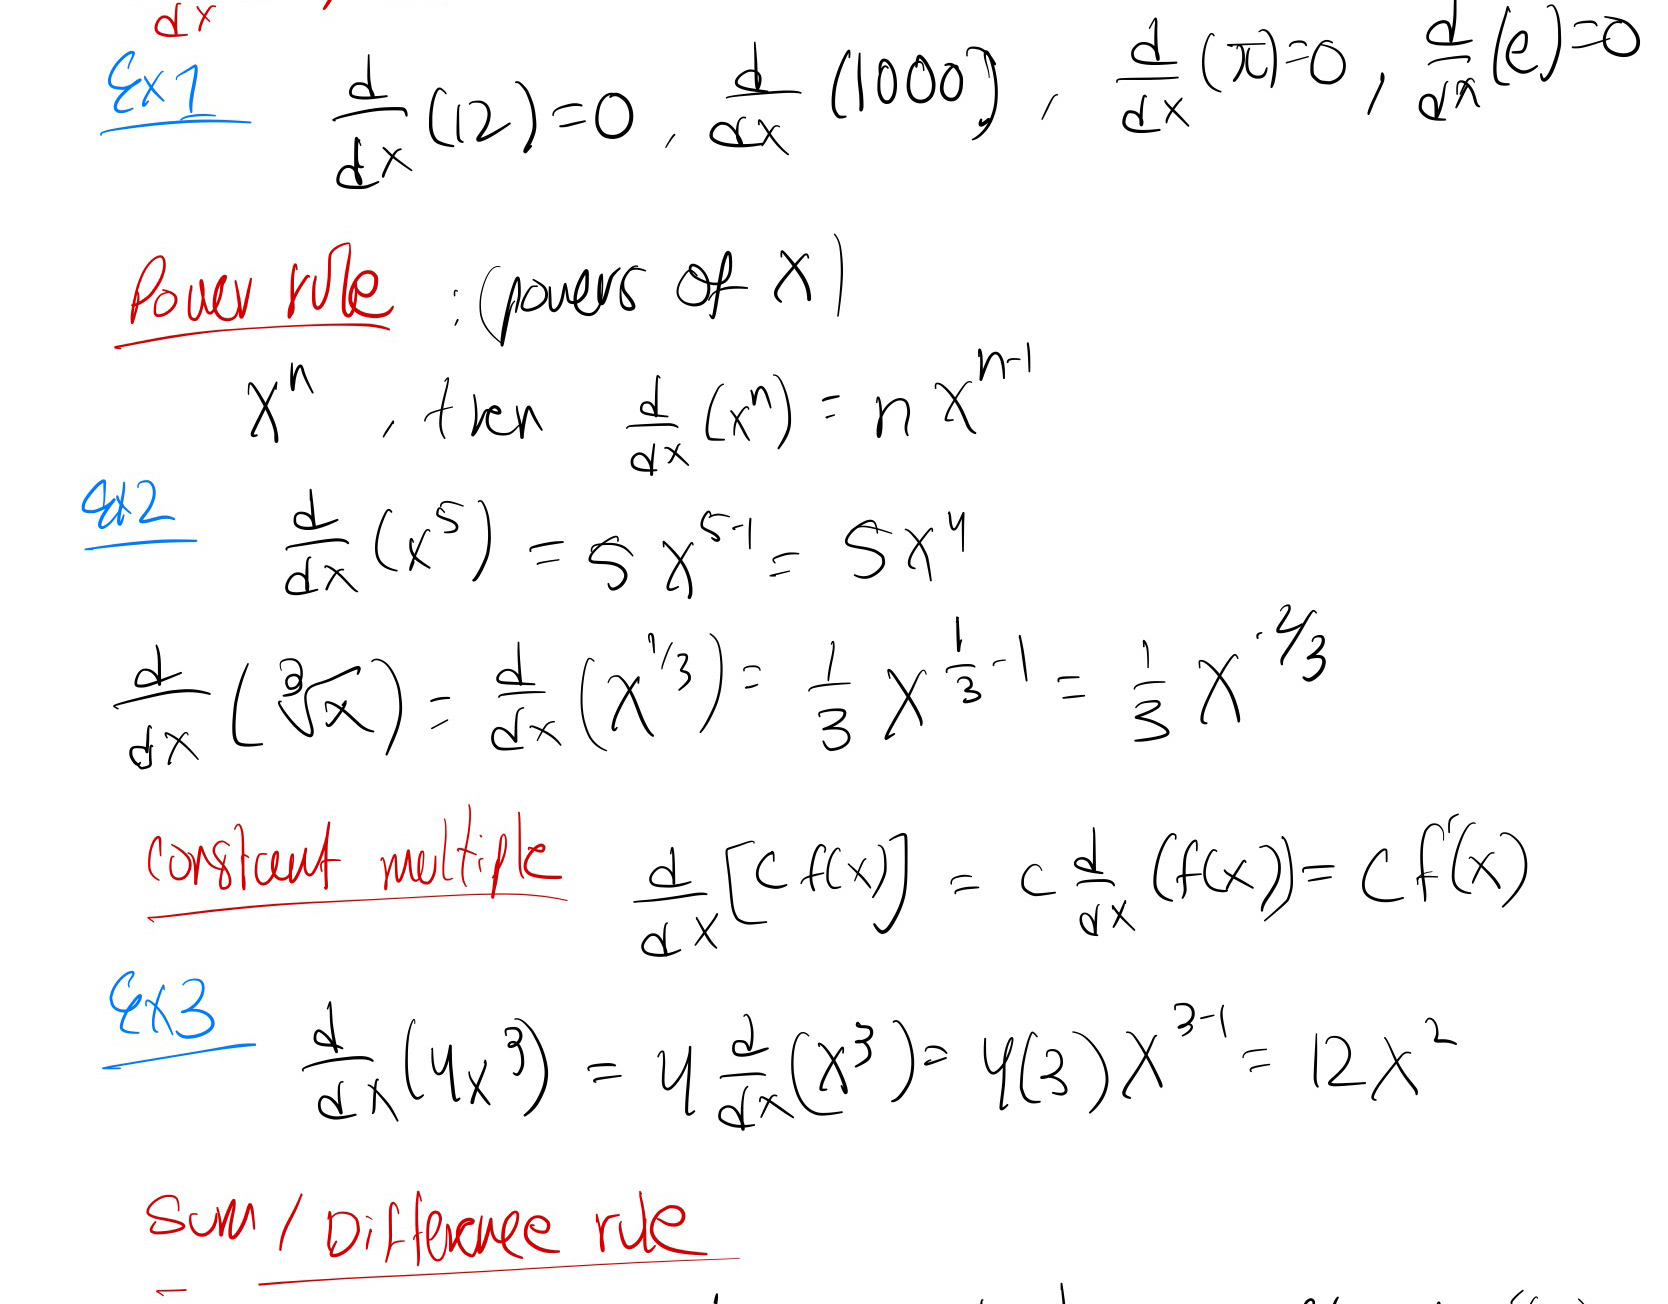 dx
Ex1 d/dx (12)=0, d/dx (1000), d/dx (π)=0, d/dx (e)=0
Power rule : (powers of x)
x^n, then d/dx (x^n) = n x^(n-1)
Ex2 d/dx (x^5) = 5 x^(5-1) = 5x^4
d/dx (∛x) = d/dx (x^(1/3)) = 1/3 x^(1/3 - 1) = 1/3 x^(-2/3)
Constant multiple d/dx [c f(x)] = c d/dx (f(x)) = c f'(x)
Ex3 d/dx (4x^3) = 4 d/dx (x^3) = 4(3) x^(3-1) = 12x^2
Sum / Difference rule